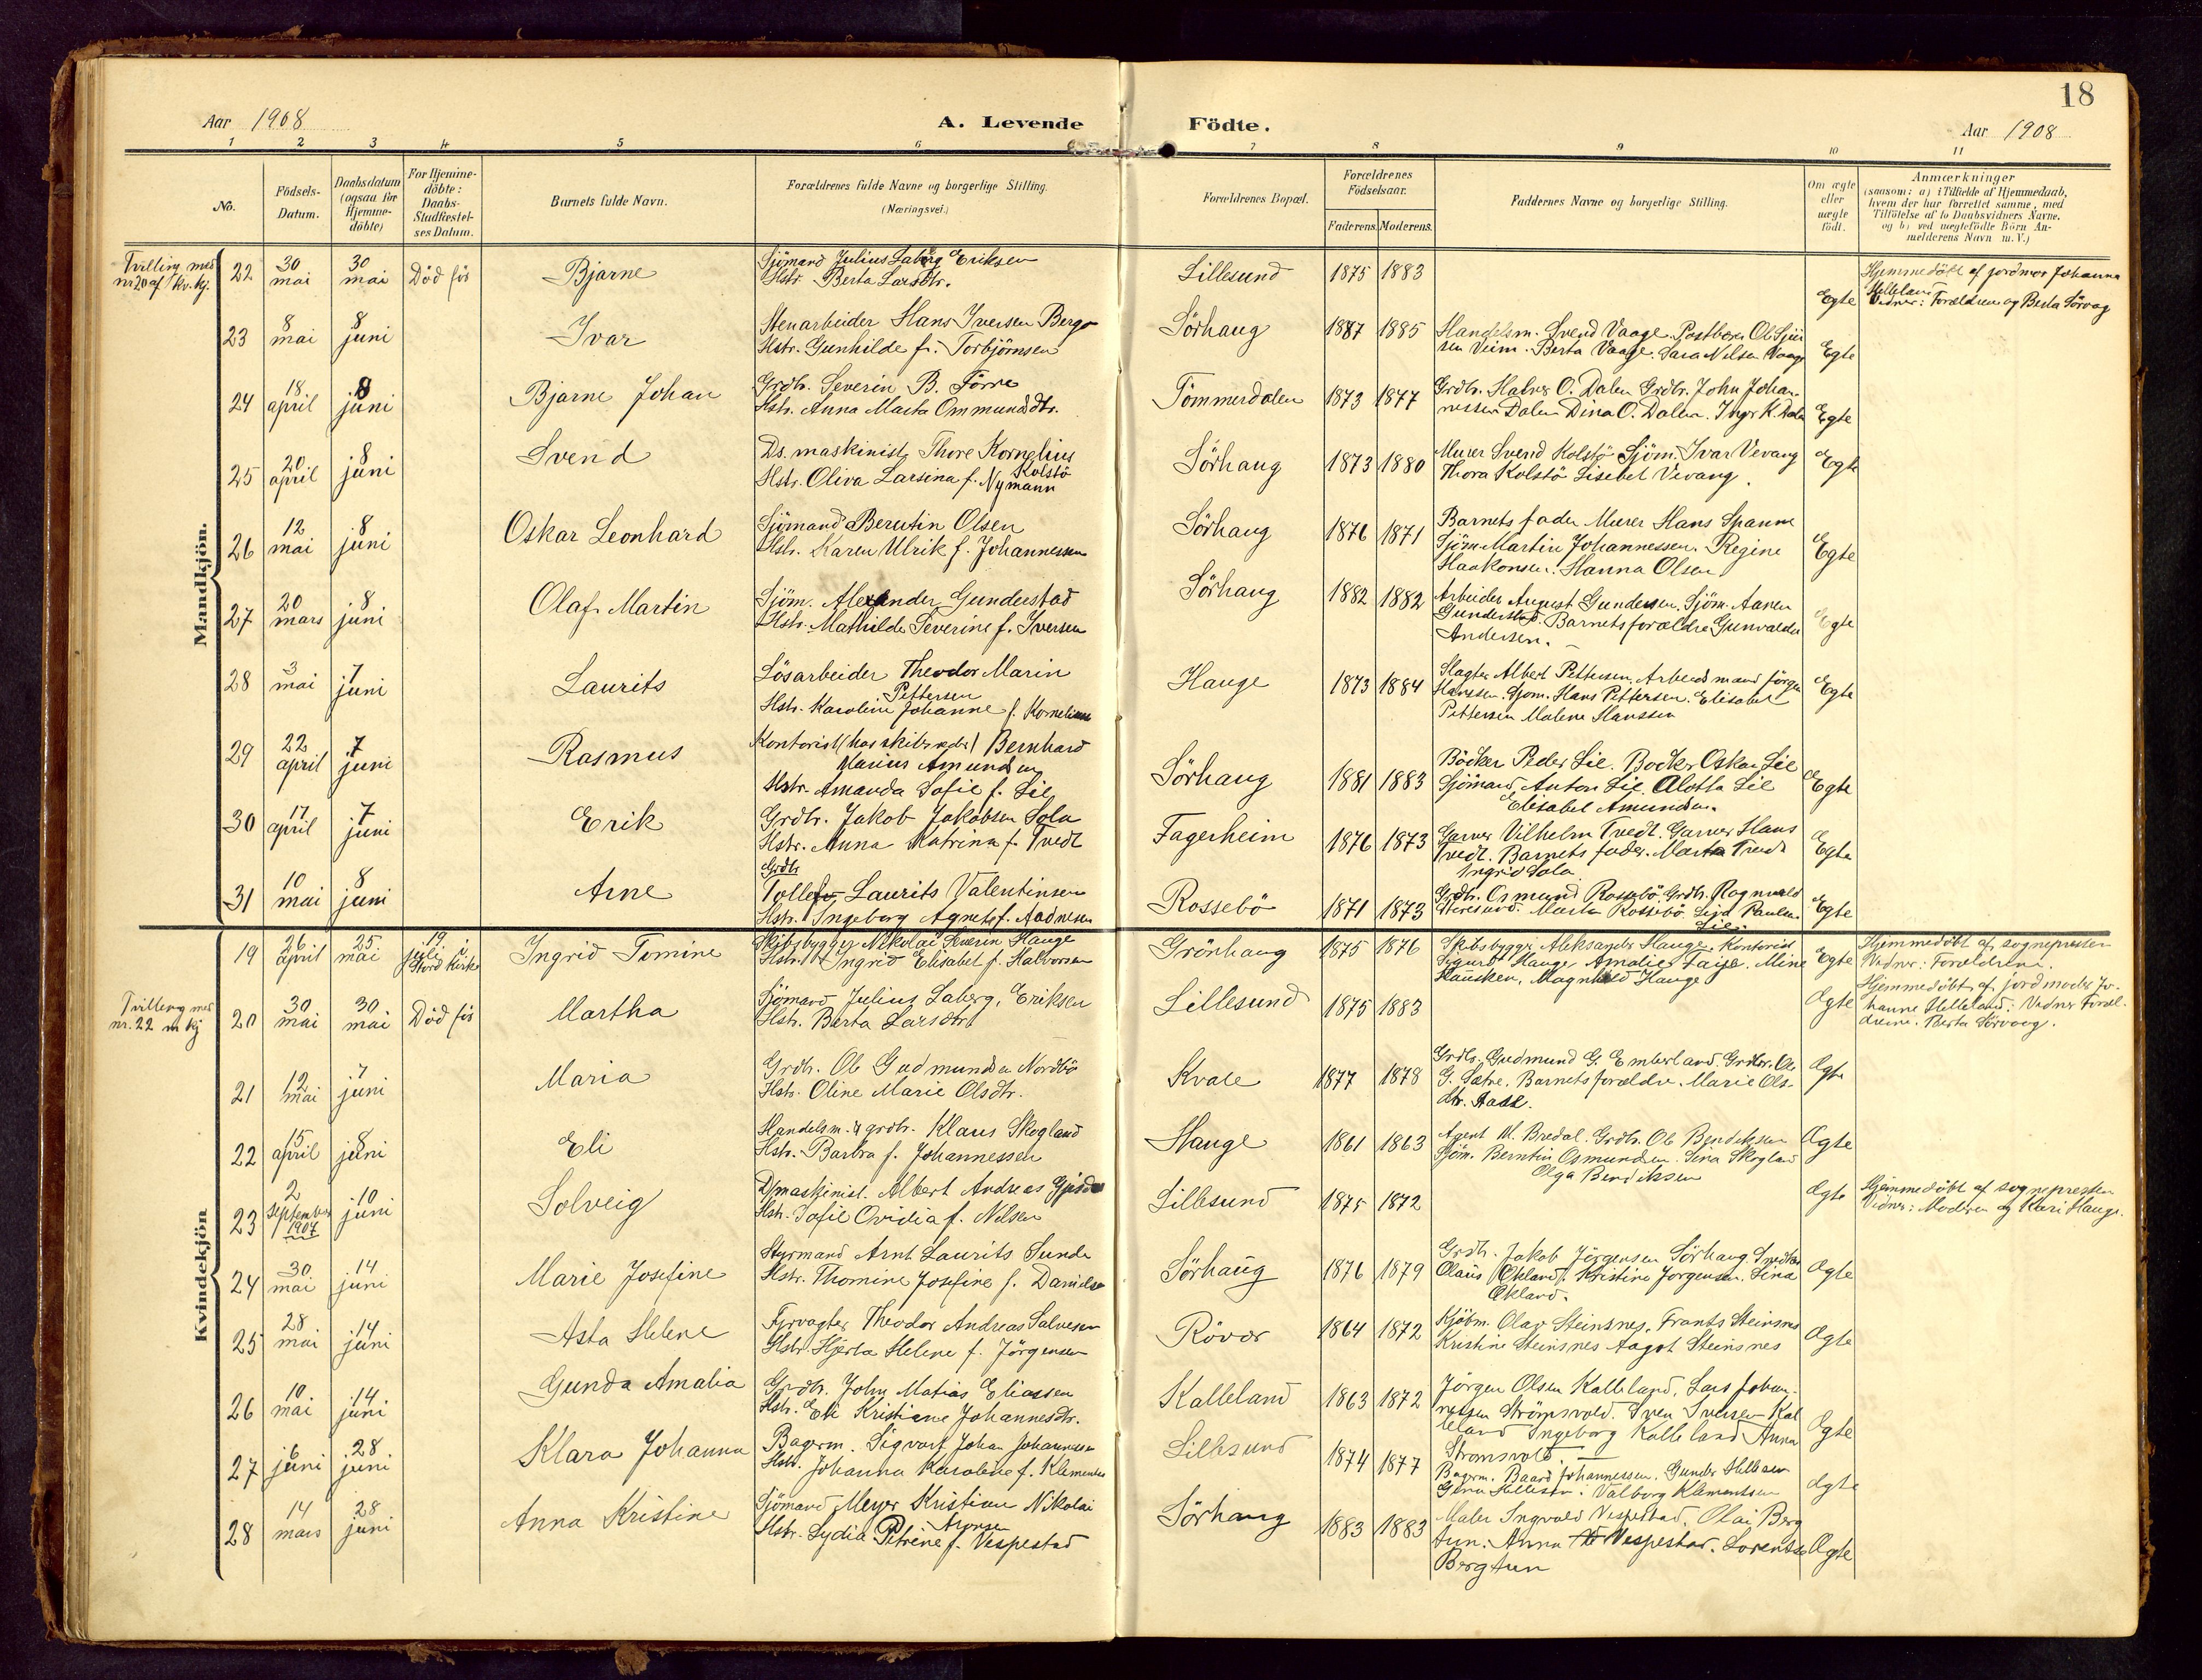 18
Aar 1908
A. Levende
Födte.
Aar 1908
1 2 3 4 5 6 7 8 9 10 11
No.
Födsels-
Datum.
Daabsdatum
(ogsaa for
Hjemme-
döbte)
For Hjemme-
döbte:
Daabs-
Stadfæstel-
ses Datum.
Barnets fulde Navn.
Forældrenes fulde Navne og borgerlige Stilling.
(Næringsvei.)
Forældrenes Bopæl.
Forældrenes
Födselsaar.
Faderens. Moderens.
Faddernes Navne og borgerlige Stilling.
Om ægte
eller
uægte
födt.
Anmærkninger
(saasom: a) i Tilfælde af Hjemmedaab,
hvem der har forrettet samme, med
Tilföielse af to Daabsvidners Navne.
og b) ved uægtefödte Börn An-
melderens Navn m.V.)
Mandkjön.
Tvilling med
nr 20 af kv.kj.
22 30 mai 30 mai Död för Bjarne
Sjömand Julius Laberg Eriksen
Hstr. Berta Larsdtr.
Lillesund 1875 1883 Egte
Hjemmedöbt af jordmor Johanna
Helleland
Vidner: Forældrene og Berta Sörvag
23 8 mai 8 juni Ivar
Stenarbeider Hans Iversen Berge
Hstr. Gunhilde f. Torbjörnsen
Sörhaug 1887 1885
Handelsm. Svend Vaage. Ole Sjur
sen Veim. Berta Vaage. Sara Nilsen Vaage
Egte
24 18 april 8 juni Bjarne Johan
Grdbr. Severin B. Förre
Hstr. Anna Marta Ommundsdtr.
Tömmerdalen 1873 1877
Grdbr. Halver O. Dalen Grdbr. John Johan-
nessen Dalen Dina O. Dalen. Inger K. Dale
Egte
25 20 april 8 juni Svend
Ds. maskinist Thore Kornelius
Kolstö
Hstr. Oliva Larsina f. Nymann
Sörhaug 1873 1880
Murer Svend Kolstö Sjöm. Ivar Vevang
Thora Kolstö Lisebet Vevang.
Egte
26 12 mai 8 juni Oskar Leonhard
Sjömand Berntin Olsen
Hstr. Karen Ulrik f. Johannessen
Sörhaug 1876 1871
Barnets fader Murer Hans Spanne
Sjöm. Martin Johannessen. Regine
Haakonsen. Hanna Olsen
Egte
27 20 mars 8 juni Olaf Martin
Sjöm. Alexander Gunderstad
Hstr. Mathilde Severine f. Iversen
Sörhaug 1882 1882
Arbeider August Gundersen. Sjöm. Aanen
Gunderstad. Barnets forældre Gunvalda
Andersen.
Egte
28 3 mai 7 juni Laurits
Lösarbeider Theodor Marin
Pettersen
Hstr. Karoline Johanne f. Kornelius
Hauge 1873 1884
Slagter Albert Pettersen. Arbeidsmand Jörgen
Hanssen. Sjöm. Hans Pettersen. Elisabet
Pettersen Malene Hanssen
Egte
29 22 april 7 juni Rasmus
Kontorist (hos skibsreder) Bernhard
Marius Amundsen
Hstr. Amanda Sofie f. Lie
Sörhaug 1881 1883
Böcker Peder Lie. Böcker Oskar Lie
Sjömand Anton Lie. Alotta Lie
Elisabet Amundsen.
Egte
30 17 april 7 juni Erik
Grdbr. Jakob Jakobsen Sola
Hstr. Anna Katrina f. Tvedt
Fagerheim 1876 1873
Garver Vilhelm Tvedt. Garver Hans
Tvedt. Barnets fader. Marta Tvedt
Ingrid Sola
Egte
31 10 mai 8 juni Arne
Grdbr
Tollef Laurits Valentinsen
Hstr. Ingeborg Agnete f. Aadnesen
Rossebö 1871 1873
Grdbr. Osmund Rossebö. Grdbr. Rognvald
Marta Rossebö. Paulen
Lie.
Egte
Kvindekjön
19 26 april 25 mai 19 juli i Stord kirke Ingrid Tomine
Skibsbygger Nikolai Severin Hauge
Hstr. Ingrid Elisabet f. Halvorsen
Grönhaug 1875 1876
Skibsbygger Aleksander Hauge. Kontorist
Sigurd Hauge. Amalie Faije. Mine
Hausken. Magnhild Hauge
Egte
Hjemmedöbt af sognepresten
Vidner: Forældrene.
Tvilling med
nr. 22 m kj
20 30 mai 30 mai Död för Martha
Sjömand Julius Laberg. Eriksen
Hstr. Berta Larsdtr.
Lillesund 1875 1883 Ægte
Hjemmedöbt af jordmoder Jo-
hanne Helleland. Vidner Foræl-
drene. Berta Sörvaag.
21 12 mai 7 juni Maria
Grdbr. Ole Gudmundsen Nordbö
Hstr. Oline Marie Olsdtr.
Kvale 1877 1878
Grdbr. Gudmund G. Emberland. Grdbr. Ole
G. Sætre. Barnets forældre. Marie Ols-
dtr.
Ægte
22 15 april 8 juni Eli
Handelsm. & grdbr. Klaus Skogland
Hstr. Barbra f. Johannessen
Hauge 1861 1863
Agent M. Bredal. Grdbr. Ole Bendiksen
Sjöm. Berntin Osmundsen. Sina Skogland
Olga Bendiksen
Ægte
23 2 september 1907 10 juni Solveig
D/maskinist. Albert Andreas Gjerde
Hstr. Sofie Ovidia f. Nilsen
Lillesund 1875 1872 Ægte
Hjemmedöbt af sognepresten
Vidner: Moderen og Kari Hauge.
24 30 mai 14 juni Marie Josefine
Styrmand Arnt Laurits Sunde
Hstr. Thomine Josefine f. Danielsen
Sörhaug 1876 1879
Grdbr. Jakob Jörgensen Sörhaug. Snedker
Olaus Økland. Kristine Jörgensen. Sina
Økland.
Ægte
25 28 mai 14 juni Asta Helene
Fyrvogter Theodor Andreas Salvesen
Hstr. Hjerta Helene f. Jörgensen
Rövær 1864 1872
Kjöbm. Olav Steinsnes. Frants Steinsnes
Kristine Steinsnes Aagot Steinsnes
Ægte
26 10 mai 14 juni Gunda Amalia
Grdbr. John Matias Eliassen
Hstr. Eli Kristiane Johannesdtr.
Kalleland 1863 1872
Jörgen Olsen Kalleland. Lars Johan-
nessen Strömsvold. Sven Iversen Kal
leland Ingeborg Kalleland Anna
Strömsvold.
Ægte
27 6 juni 28 juni Klara Johanna
Bagerm. Sigvart Johan Johannessen
Hstr. Johanna Karoline f. Klementsen
Lillesund 1874 1877
Bagerm. Baard Johannessen. Gunder Hellesen
Gina Hellesen. Valborg Klementsen
Ægte
28 14 mars 28 juni Anna Kristine
Sjömand Meyer Kristian Nikolai
Aronsen
Hstr. Lydia Petrine f. Vespestad
Sörhaug 1883 1883
Maler Ingvald Vespestad. Olai Berg
tun. Anna Vespestad. Lorentse
Bergtun
Ægte